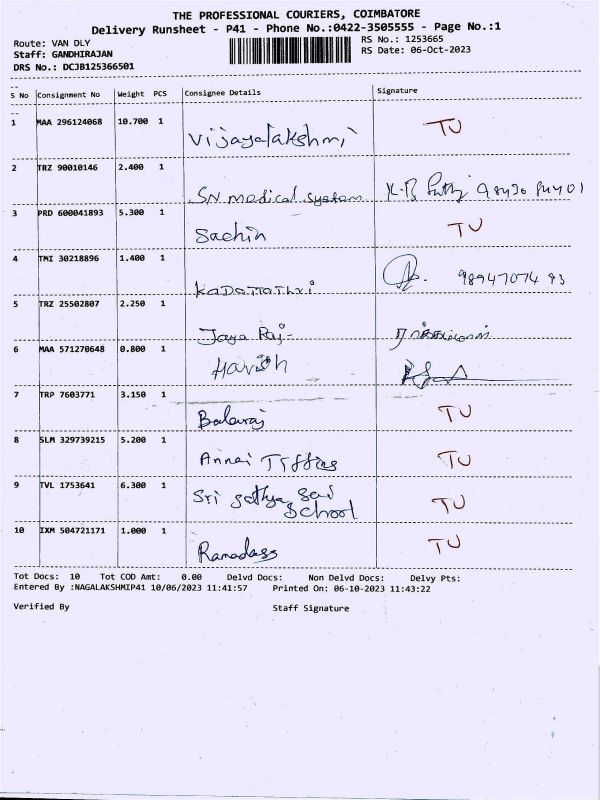 THE PROFESSIONAL COURIERS, COIMBATORE
Delivery Runsheet - P41 - Phone No.:0422-3505555 - Page No.:1
Route: VAN DLY RS No.: 1253665
Staff: GANDHIRAJAN RS Date: 06-Oct-2023
DRS No.: DCJB125366501
S No Consignment No Weight PCS Consignee Details Signature
1 MAA 296124068 10.700 1 Vijayalakshmi TU
2 TRZ 90010146 2.400 1 SN medical system
3 PRD 600041893 5.300 1 Sachin TU
4 TMI 30218896 1.400 1 98947074 93
5 TRZ 25502807 2.250 1 Jaya Raj-
6 MAA 571270648 0.800 1 Harish
7 TRP 7603771 3.150 1 Balaraj TU
8 SLM 329739215 5.200 1 Annai Tiffins TU
9 TVL 1753641 6.300 1 Sri Sathya Sai School TU
10 IXM 504721171 1.000 1 Ramadass TU
Tot Docs: 10 Tot COD Amt: 0.00 Delvd Docs: Non Delvd Docs: Delvy Pts:
Entered By :NAGALAKSHMIP41 10/06/2023 11:41:57 Printed On: 06-10-2023 11:43:22
Verified By Staff Signature